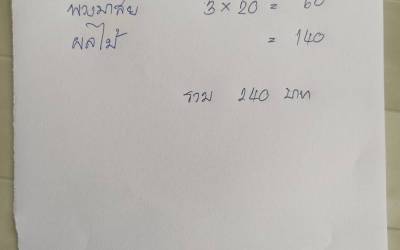 พวงมาลัย 3 × 20 = 60
ผลไม้ = 140
รวม 240 บาท